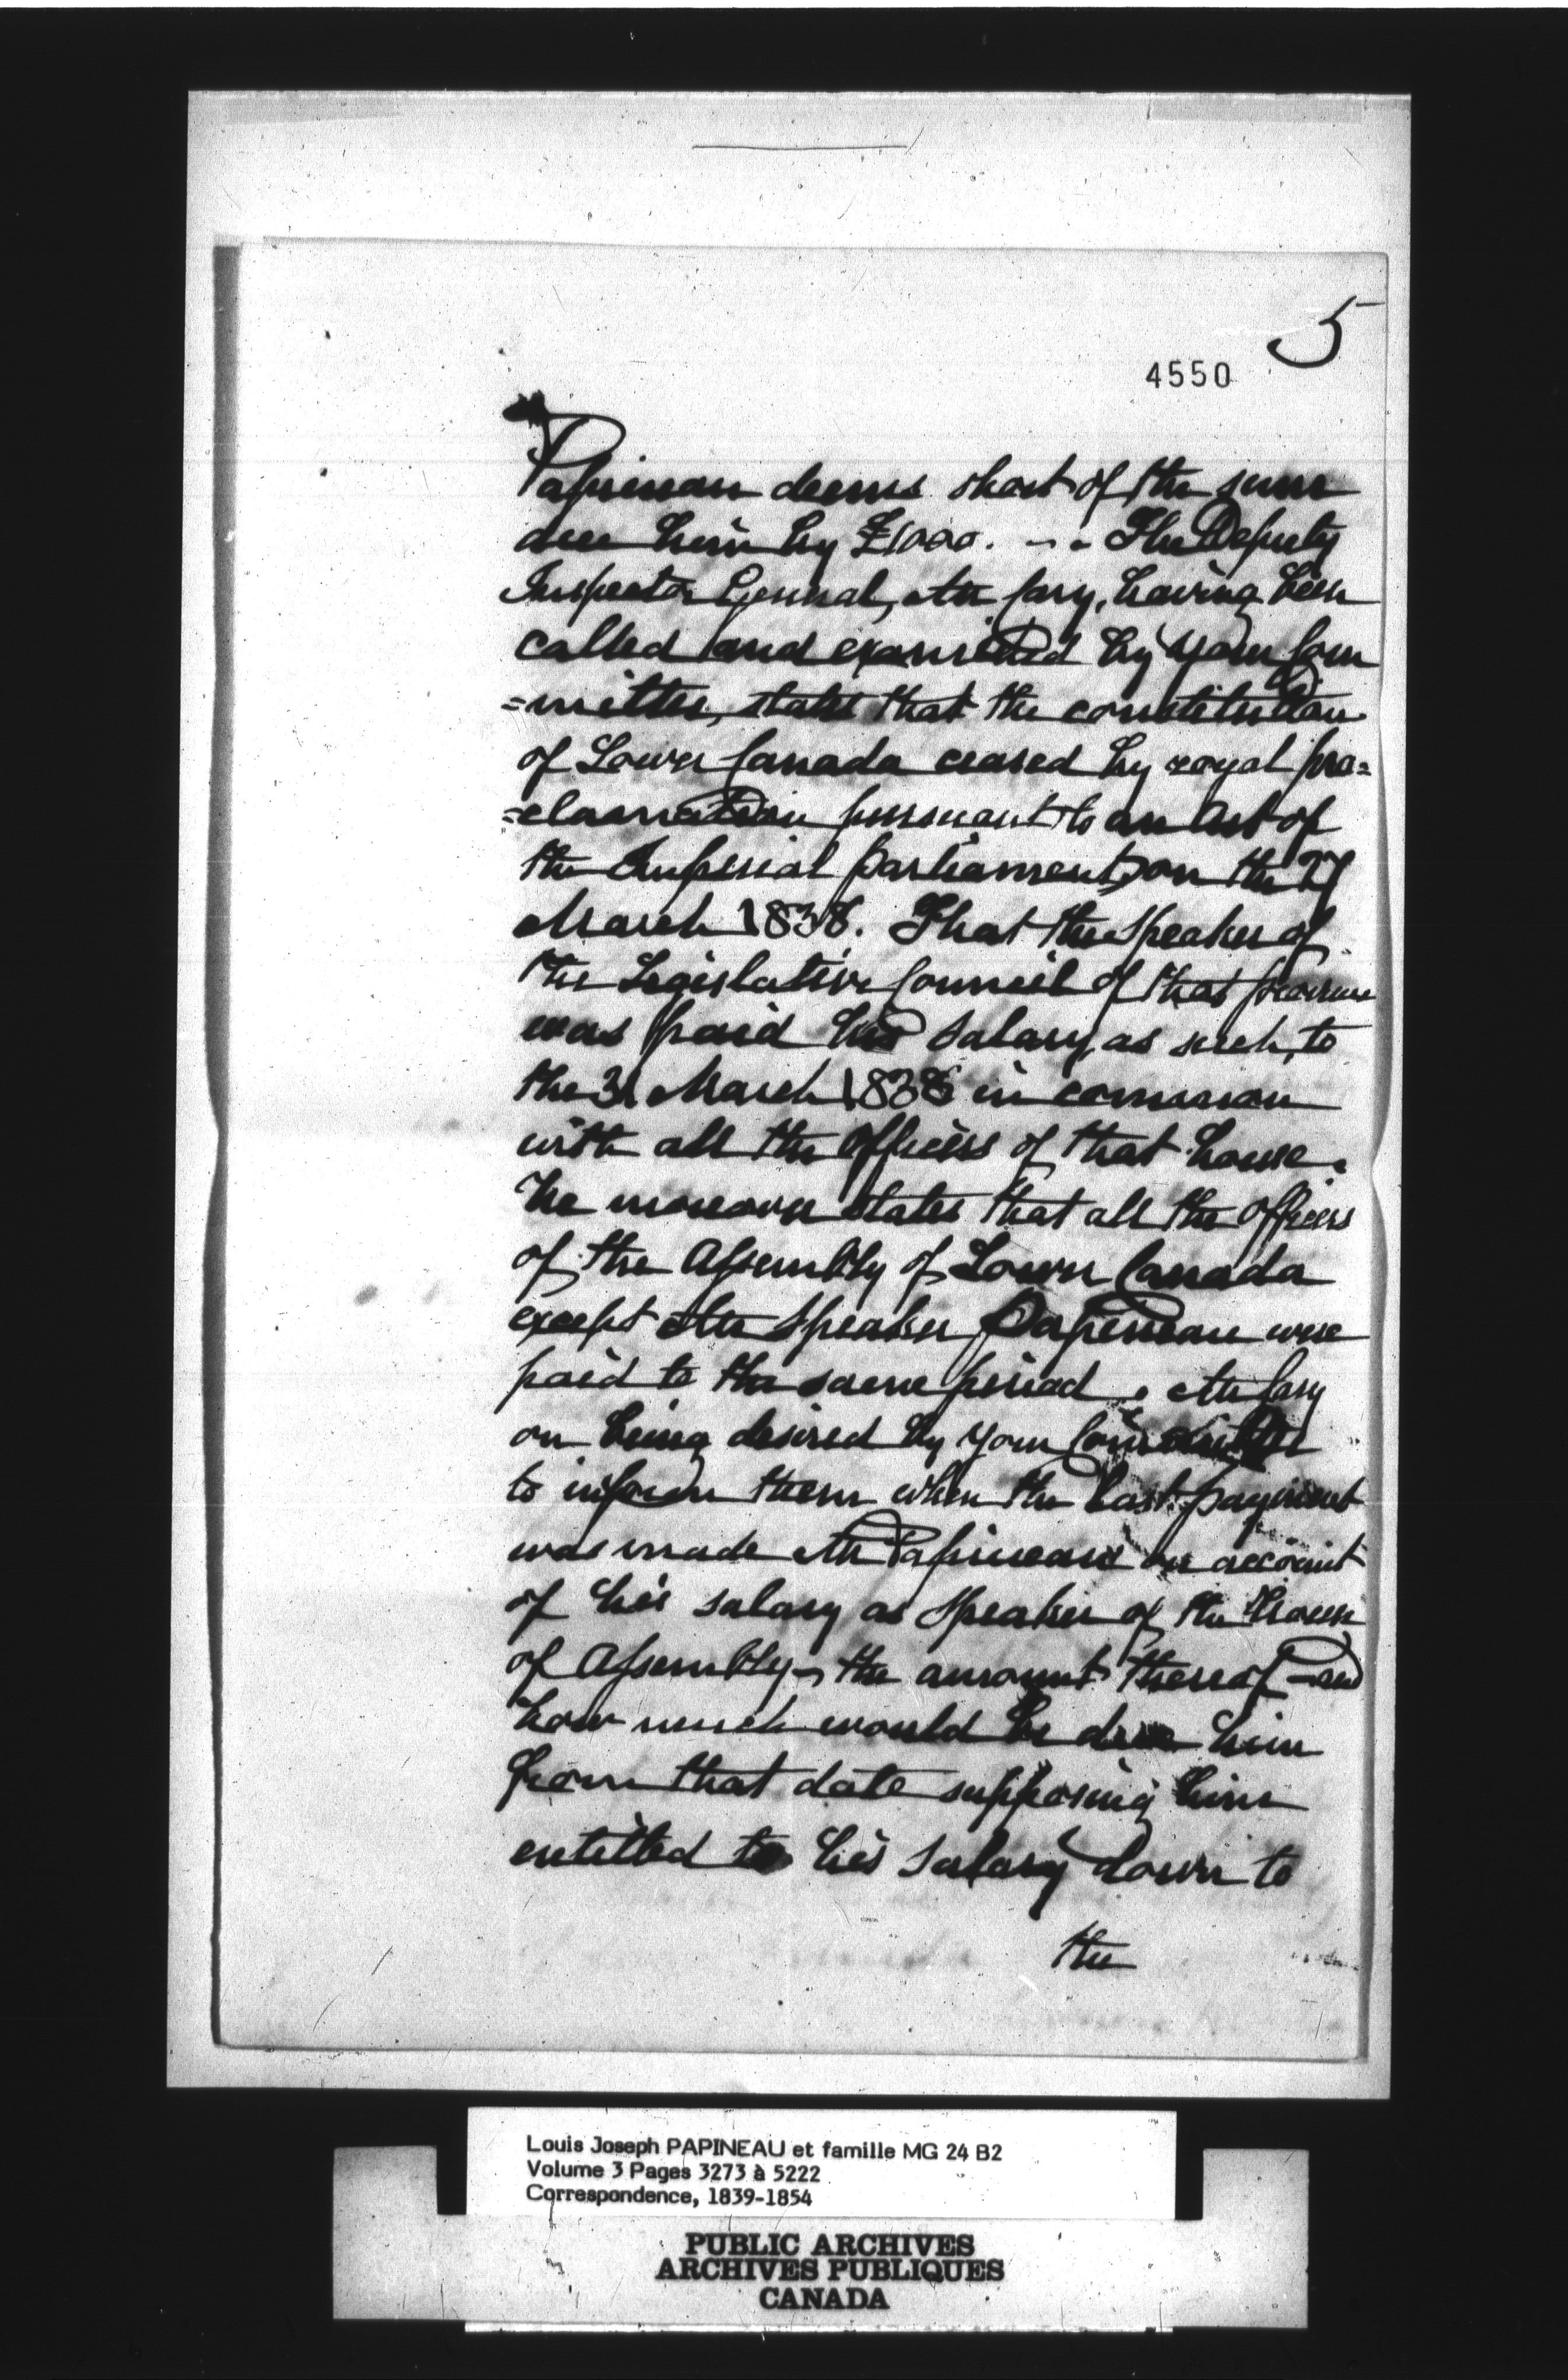 5
4550
Papineau deems short of the sum
due him by £1000. -- The Deputy
Inspector General, Mr Cary, having been
called and examined by your Com
=mittee, states that the constitution
of Lower Canada ceased by royal pro=
=clamation pursuant to an Act of
the Imperial parliament, on the 27
March 1838. That the Speaker of
the Legislative Council of that province
was paid his salary, as such, to
the 31 March 1838 in common
with all the Officers of that house.
He moreover states that all the Officers
of the Assembly of Lower Canada
except Mr Speaker Papineau were
paid to the same period. Mr Cary
on being desired by your Committee
to inform them when the last payment
was made Mr Papineau on account
of his salary as Speaker of the House
of Assembly - the amount thereof - and
how much would be due him
from that date supposing him
entitled to his salary down to
the
Louis Joseph PAPINEAU et famille MG 24 B2
Volume 3 Pages 3273 à 5222
Correspondence, 1839-1854
PUBLIC ARCHIVES
ARCHIVES PUBLIQUES
CANADA